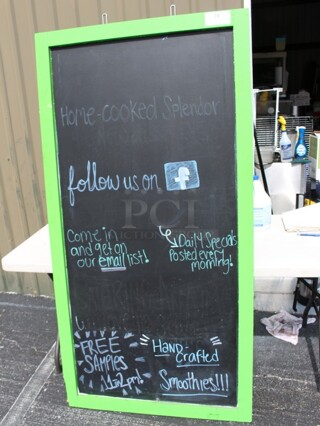 Home-cooked Splendor
follow us on f
Come in
and get on
our email list!
Daily Specials
Posted every
morning!
PCI
FREE
SAMPLES
HAND-
crafted
Smoothies!!!